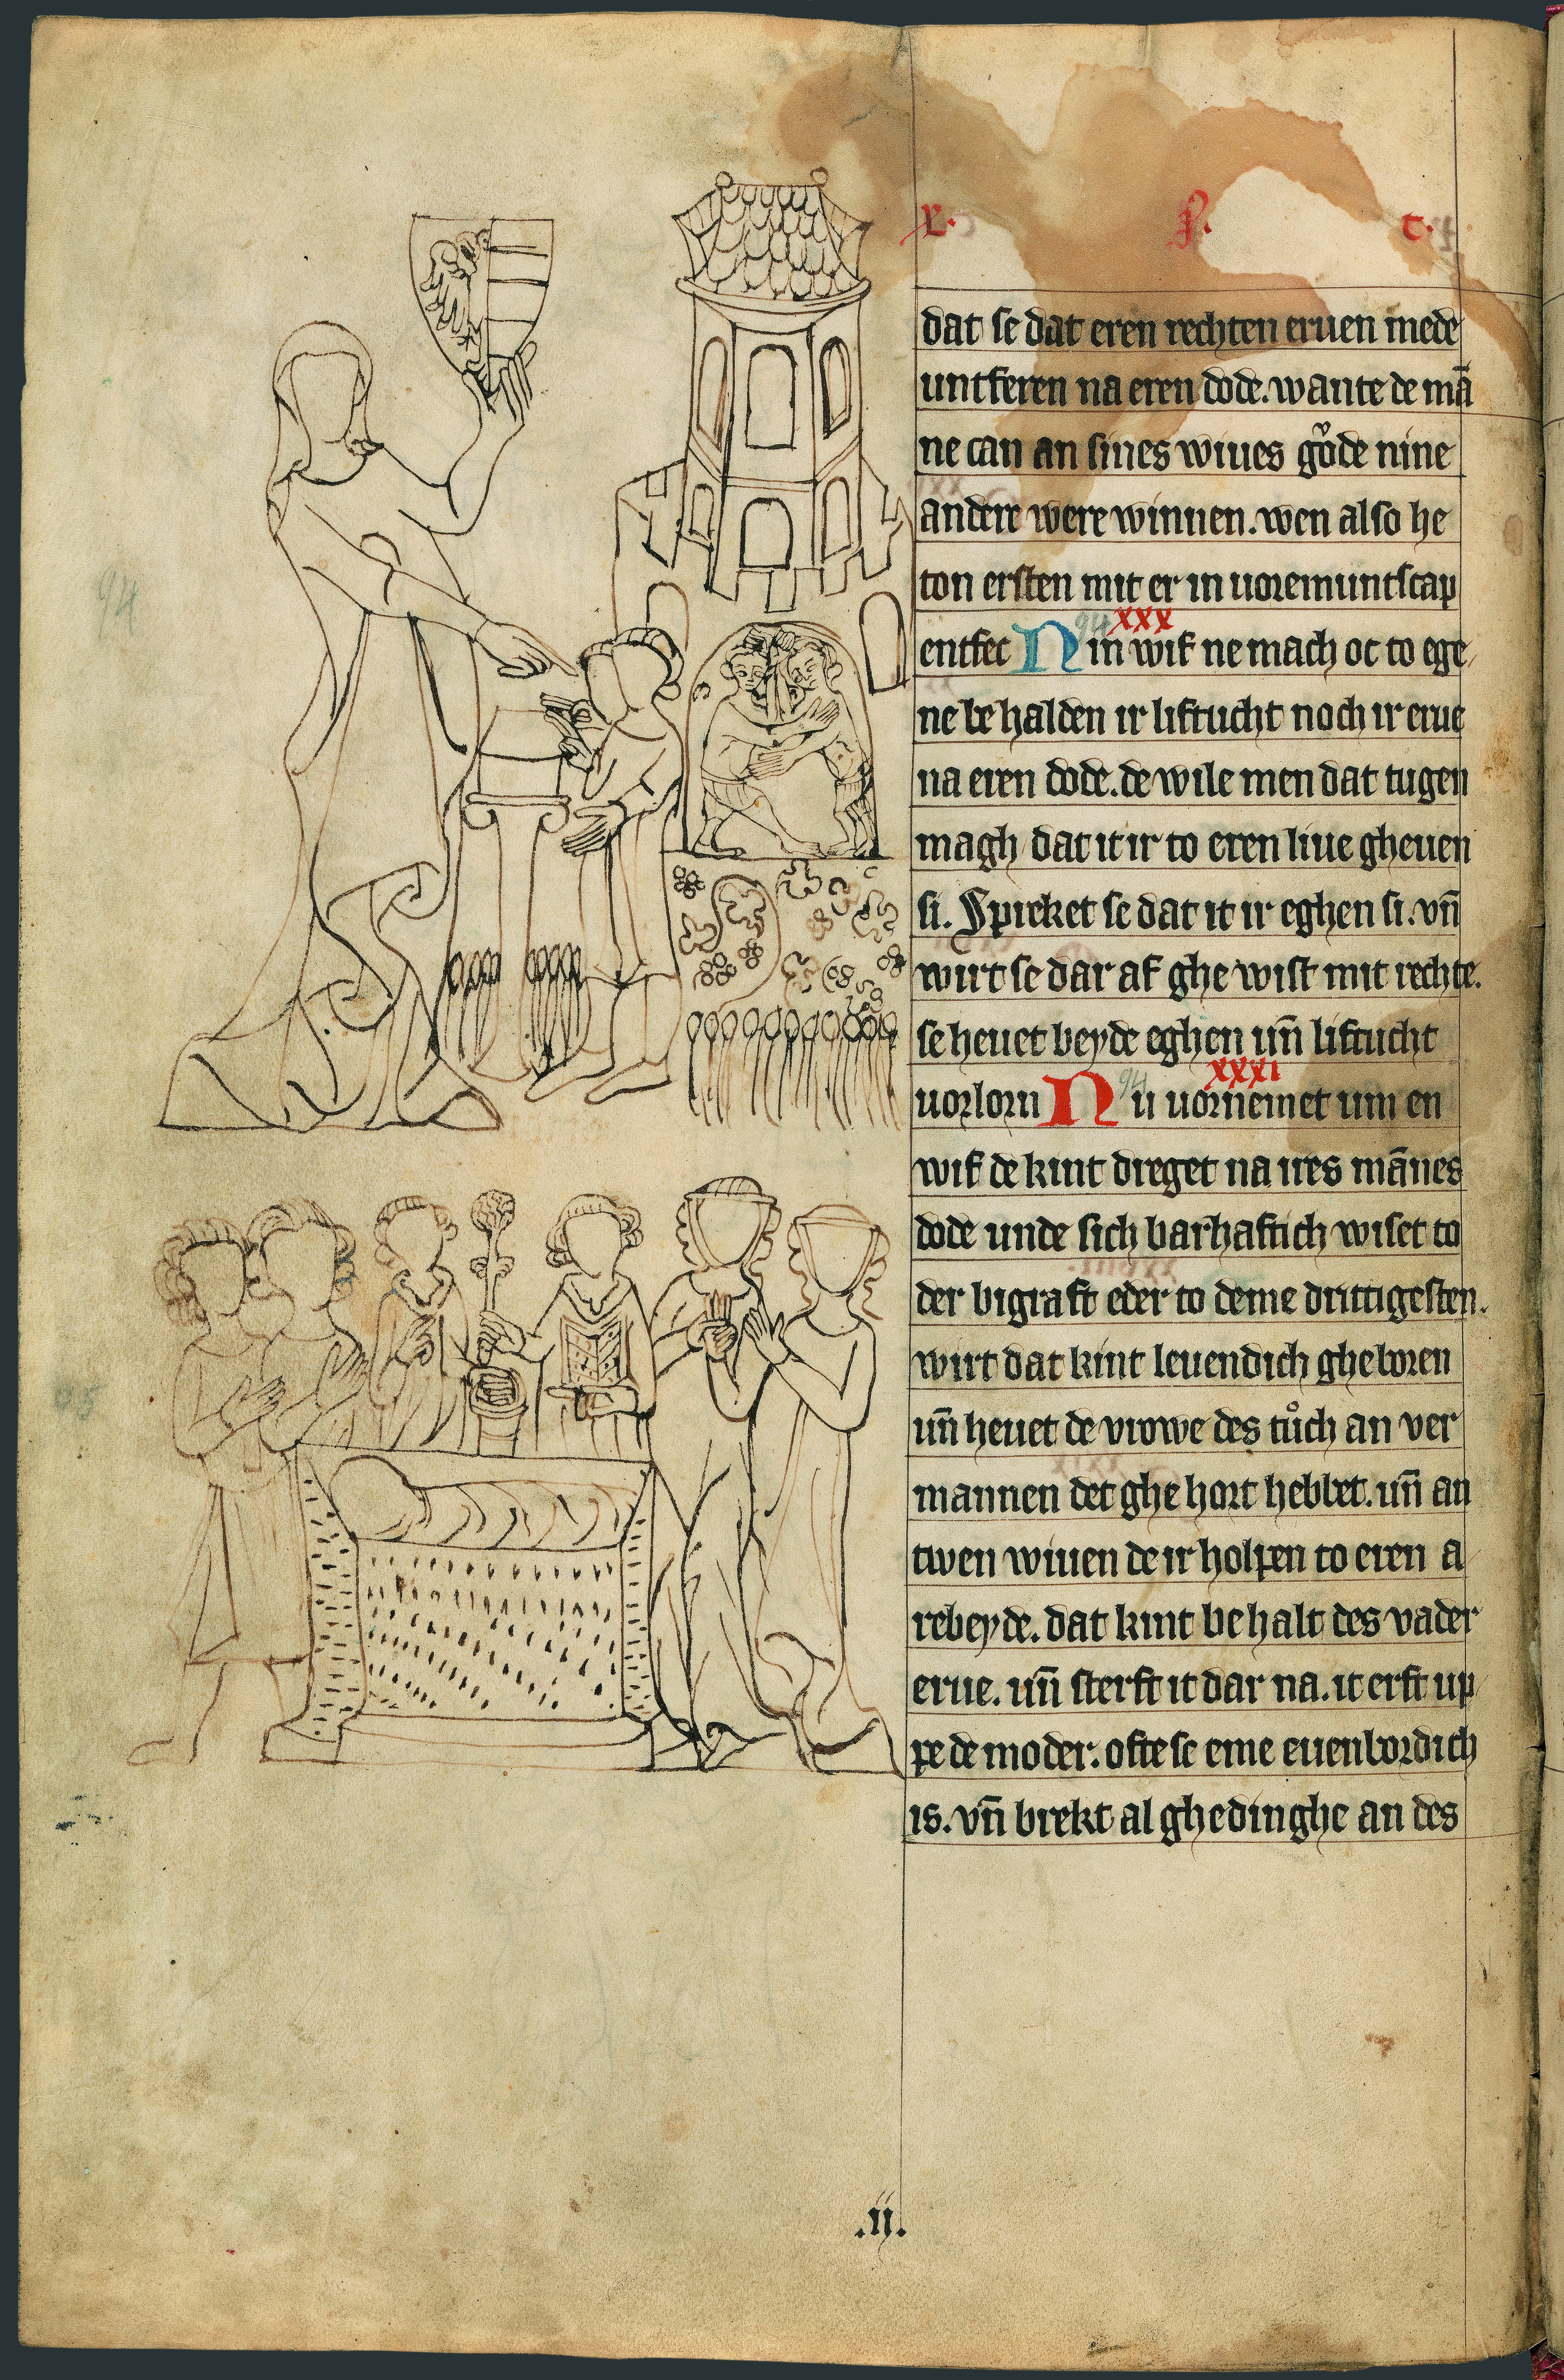 dat se dat eren rechten eruen mede
untferen na eren dode. wante de mā
ne can an sines wiues gode nine
andere were winnen. wen also he
ton ersten mit er in uoremuntscap
xxx
entfec Nin wif ne mach oc to ege
ne be halden ir liftucht noch ir erue
na eren dode. de wile men dat tugen
magh dat it ir to eren liue gheuen
si. Spricket se dat it ir eghen si. vn̄
wirt se dar af ghe wist mit rechte.
se heuet beyde eghen un̄ liftucht
xxxi
uorlorn Nu uornemet um en
wif de kint dreget na ires mānes
dode unde sich barhaftich wiset to
der bigraft eder to deme drittigesten.
wirt dat kint leuendich gheboren
un̄ heuet de vrowe des tůch an ver
mannen det ghe hort hebbet. un̄ an
twen wiuen de ir holpen to eren a
rebeyde. dat kint be halt des vader
erue. un̄ sterft it dar na. it erft up
pe de moder. ofte se eme euenbordich
is. vn̄ brekt al ghedinghe an des
94
.ii.